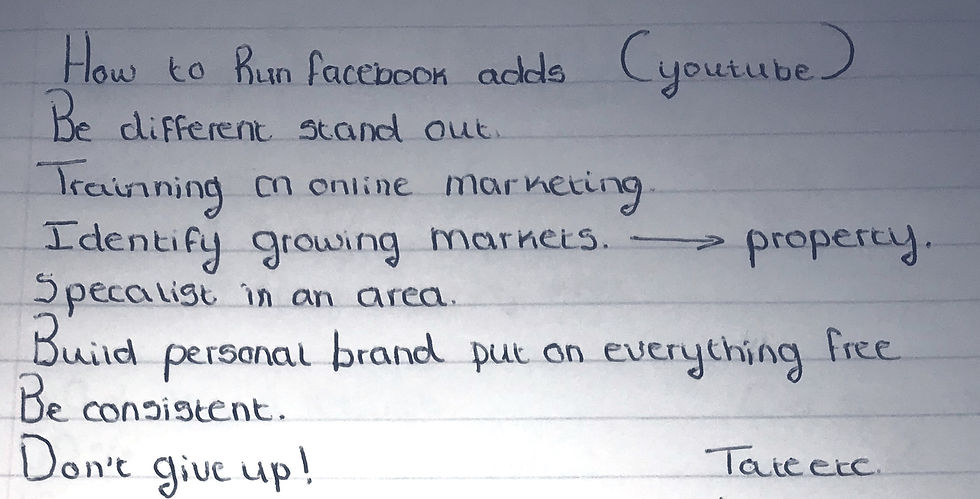 How to Run facebook adds (youtube)
Be different stand out.
Trainning on online marketing.
Identify growing markets. → property.
Specalist in an area.
Build personal brand put on everything free
Be consistent.
Don't give up!